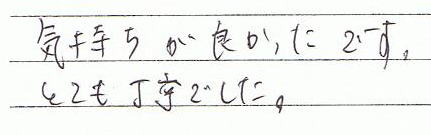 気持ちが良かったです。
とても丁寧でした。